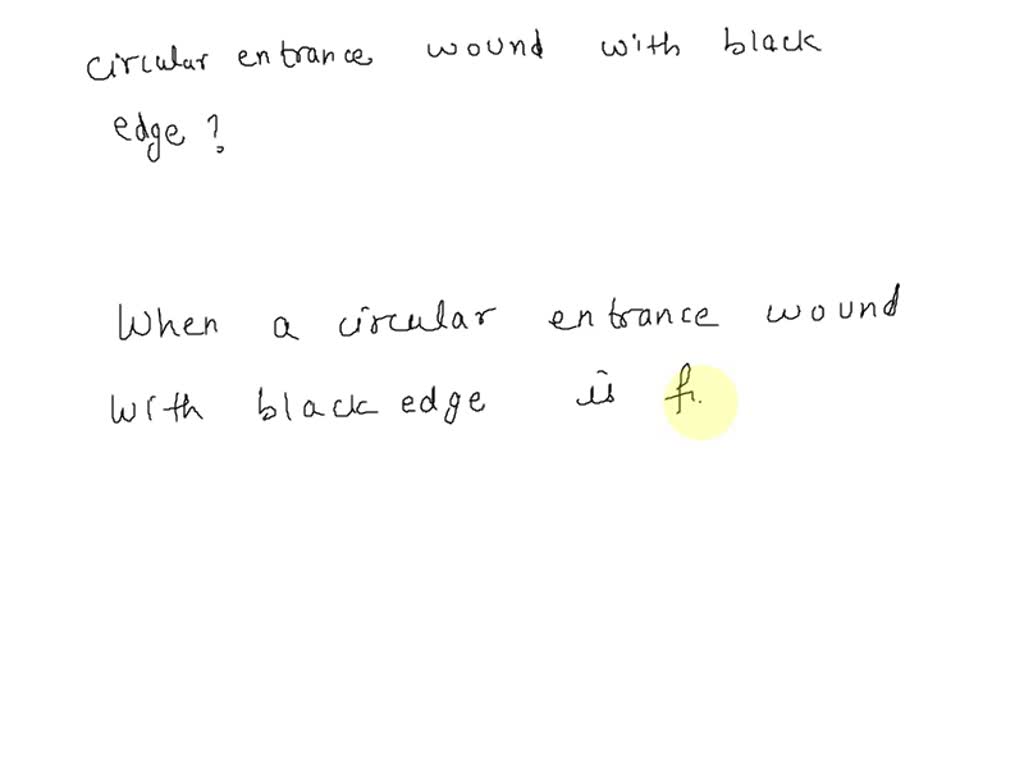 circular entrance wound with black
edge ?
When a circular entrance wound
with black edge is f